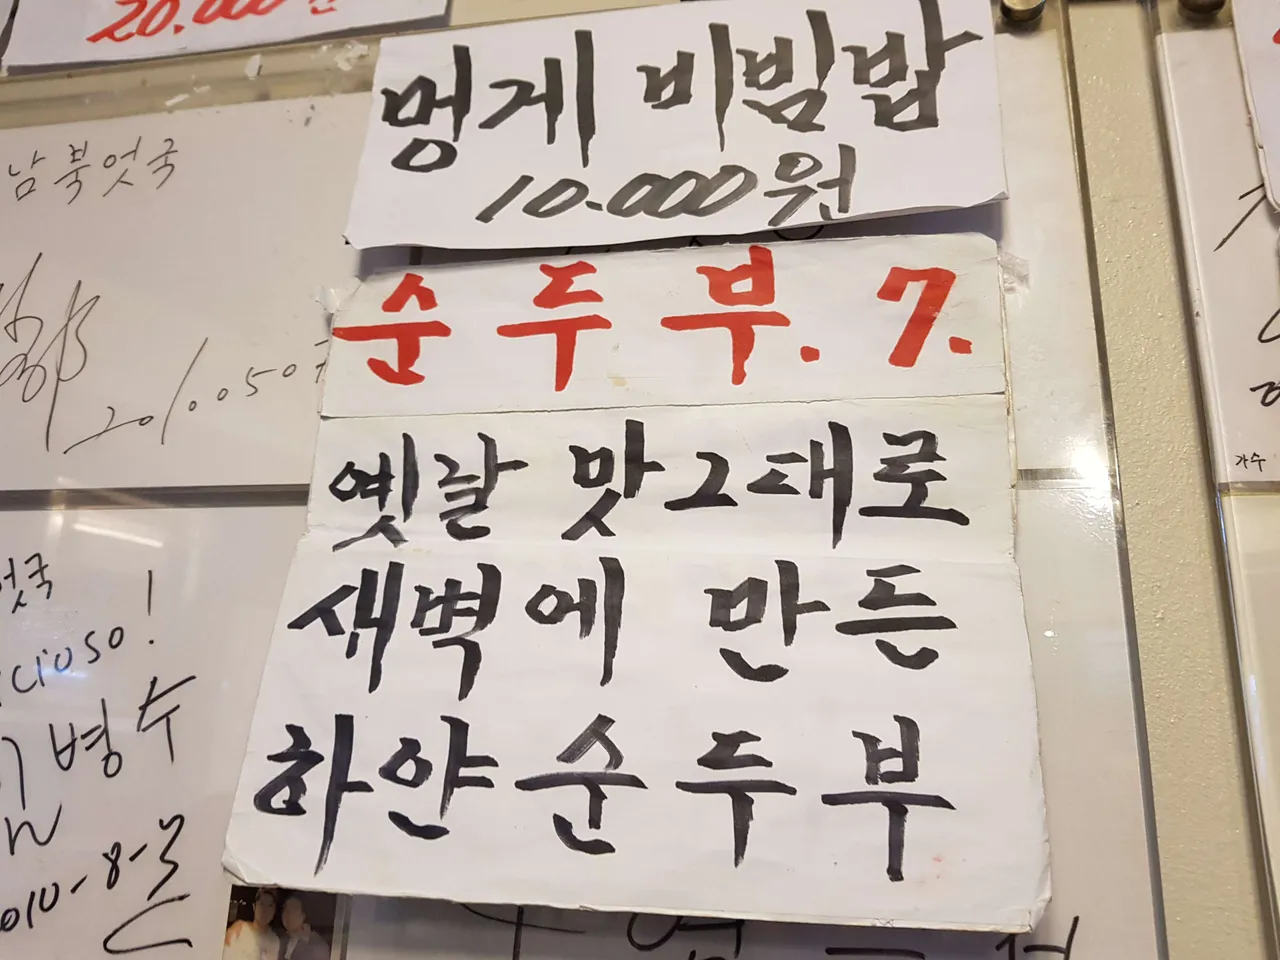 20.000원
멍게 비빔밥
10.000원
순두부. 7.
옛날 맛그대로
새벽에 만든
하얀순두부
남북엇국
201.050
엇국
cioso!
병수
010-8-3
가수